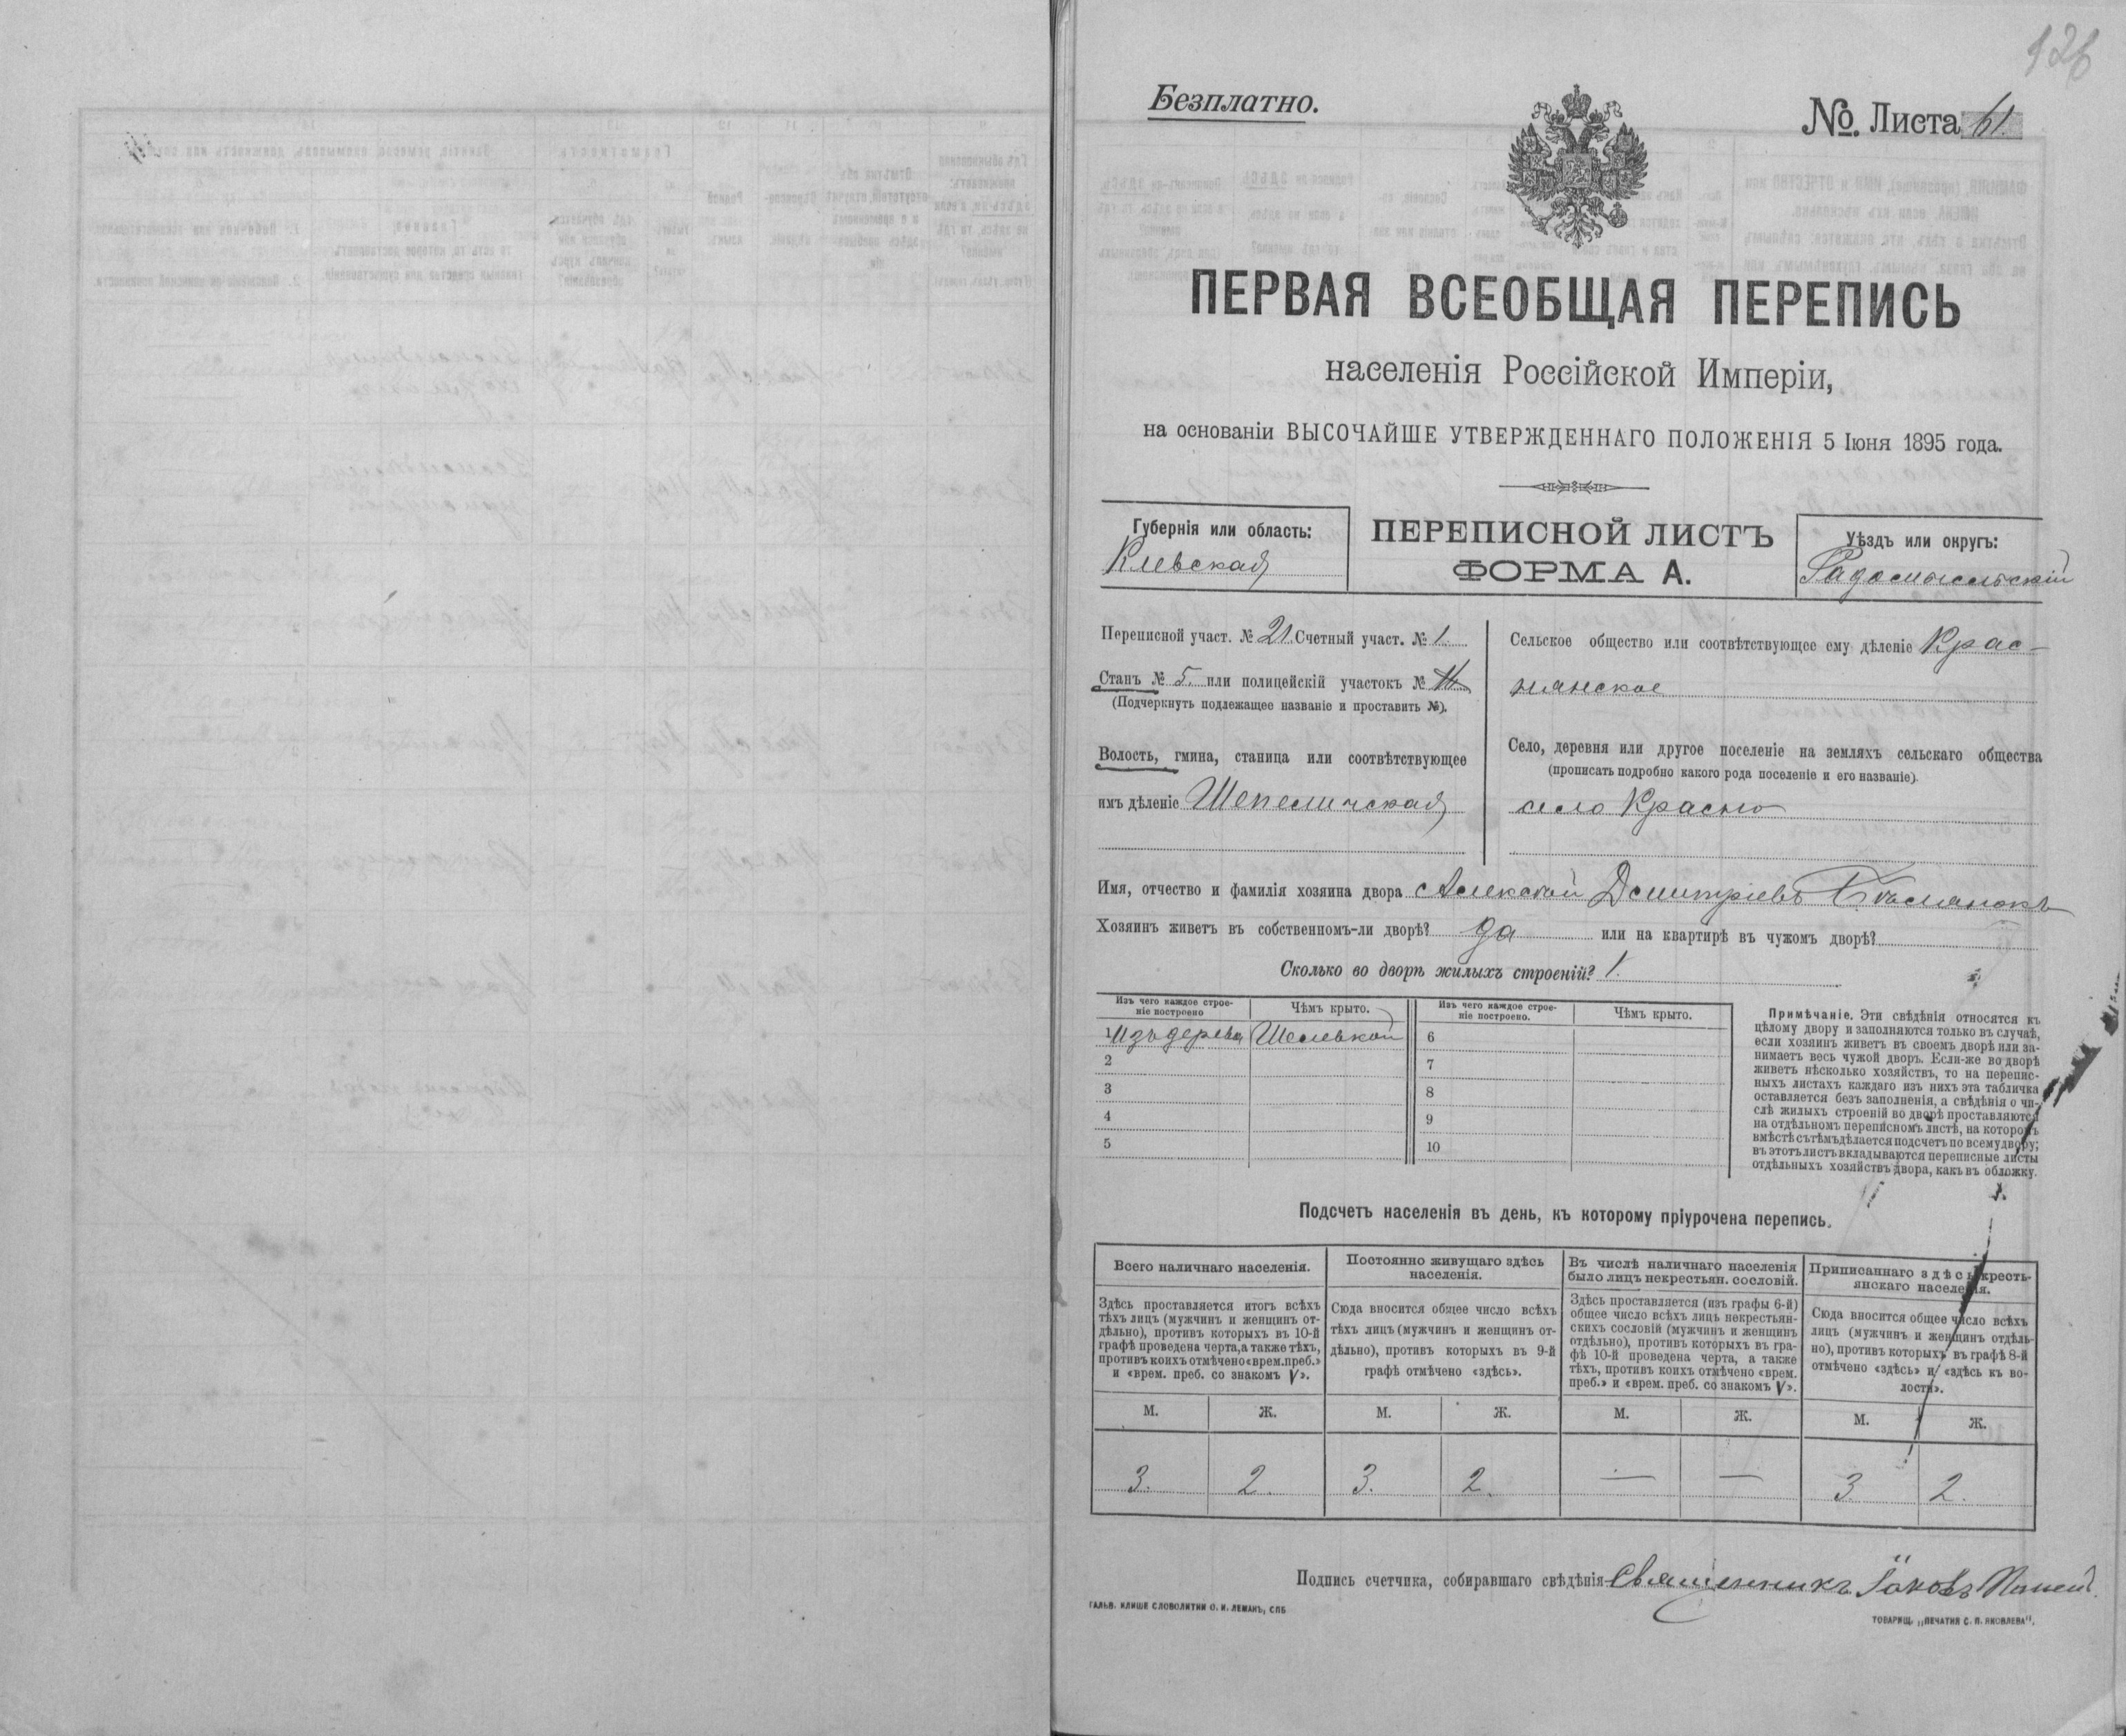 126
Безплатно.
№ Листа 61
ПЕРВАЯ ВСЕОБЩАЯ ПЕРЕПИСЬ
населенія Россійской Имперіи,
на основаніи ВЫСОЧАЙШЕ УТВЕРЖДЕННАГО ПОЛОЖЕНІЯ 5 Іюня 1895 года.
Губернія или область:
Кіевская
ПЕРЕПИСНОЙ ЛИСТЪ
ФОРМА А.
Уѣздъ или округъ:
Радомысльскій
Переписной участ. № 21. Счетный участ. № 1.
Станъ № 5. или полицейскій участокъ №
(Подчеркнуть подлежащее названіе и проставить №).
Волость, гмина, станица или соотвѣтствующее
имъ дѣленіе Шепеличская
Сельское общество или соотвѣтствующее ему дѣленіе Крас-
нянское
Село, деревня или другое поселеніе на земляхъ сельскаго общества
(прописать подробно какого рода поселеніе и его названіе).
село Красно
Имя, отчество и фамилія хозяина двора Алексѣй Дмитріевъ
Хозяинъ живетъ въ собственномъ-ли дворѣ? да или на квартирѣ въ чужомъ дворѣ?
Сколько во дворѣ жилыхъ строеній? 1.
Изъ чего каждое строе-
ніе построено
Чѣмъ крыто.
Изъ чего каждое строе-
ніе построено.
Чѣмъ крыто.
1 Изъ дерева
6
2
7
3
8
4
9
5
10
Примѣчаніе. Эти свѣдѣнія относятся къ
цѣлому двору и заполняются только въ случаѣ,
если хозяинъ живетъ въ своемъ дворѣ или за-
нимаетъ весь чужой дворъ. Если-же во дворѣ
живетъ нѣсколько хозяйствъ, то на перепис-
ныхъ листахъ каждаго изъ нихъ эта табличка
оставляется безъ заполненія, а свѣдѣнія о чи-
слѣ жилыхъ строеній во дворѣ проставляются
на отдѣльномъ переписномъ листѣ, на которомъ
вмѣстѣ съ тѣмъ дѣлается подсчетъ по всему двору;
въ этотъ листъ вкладываются переписные листы
отдѣльныхъ хозяйствъ двора, какъ въ обложку.
Подсчетъ населенія въ день, къ которому пріурочена перепись.
Всего наличнаго населенія.
Здѣсь проставляется итогъ всѣхъ
тѣхъ лицъ (мужчинъ и женщинъ от-
дѣльно), противъ которыхъ въ 10-й
графѣ проведена черта, а также тѣхъ,
противъ коихъ отмѣчено «врем. преб.»
и «врем. преб. со знакомъ V».
Постоянно живущаго здѣсь
населенія.
Сюда вносится общее число всѣхъ
тѣхъ лицъ (мужчинъ и женщинъ от-
дѣльно), противъ которыхъ въ 9-й
графѣ отмѣчено «здѣсь».
Въ числѣ наличнаго населенія
было лицъ некрестьян. сословій.
Здѣсь проставляется (изъ графы 6-й)
общее число всѣхъ лицъ некрестьян-
скихъ сословій (мужчинъ и женщинъ
отдѣльно), противъ которыхъ въ гра-
фѣ 10-й проведена черта, а также
тѣхъ, противъ коихъ отмѣчено «врем.
преб.» и «врем. преб. со знакомъ V».
Приписаннаго здѣсь кресть-
янскаго населенія.
Сюда вносится общее число всѣхъ
лицъ (мужчинъ и женщинъ отдѣль-
но), противъ которыхъ въ графѣ 8-й
отмѣчено «здѣсь» и «здѣсь къ во-
лости».
М. Ж. М. Ж. М. Ж. М. Ж.
3. 2. 3. 2. — — 3. 2.
Подпись счетчика, собиравшаго свѣдѣнія Священникъ Іаковъ
ГАЛЬВ. КЛИШЕ СЛОВОЛИТНИ О. И. ЛЕМАНЪ, СПБ
ТОВАРИЩ. „ПЕЧАТНЯ С. П. ЯКОВЛЕВА".